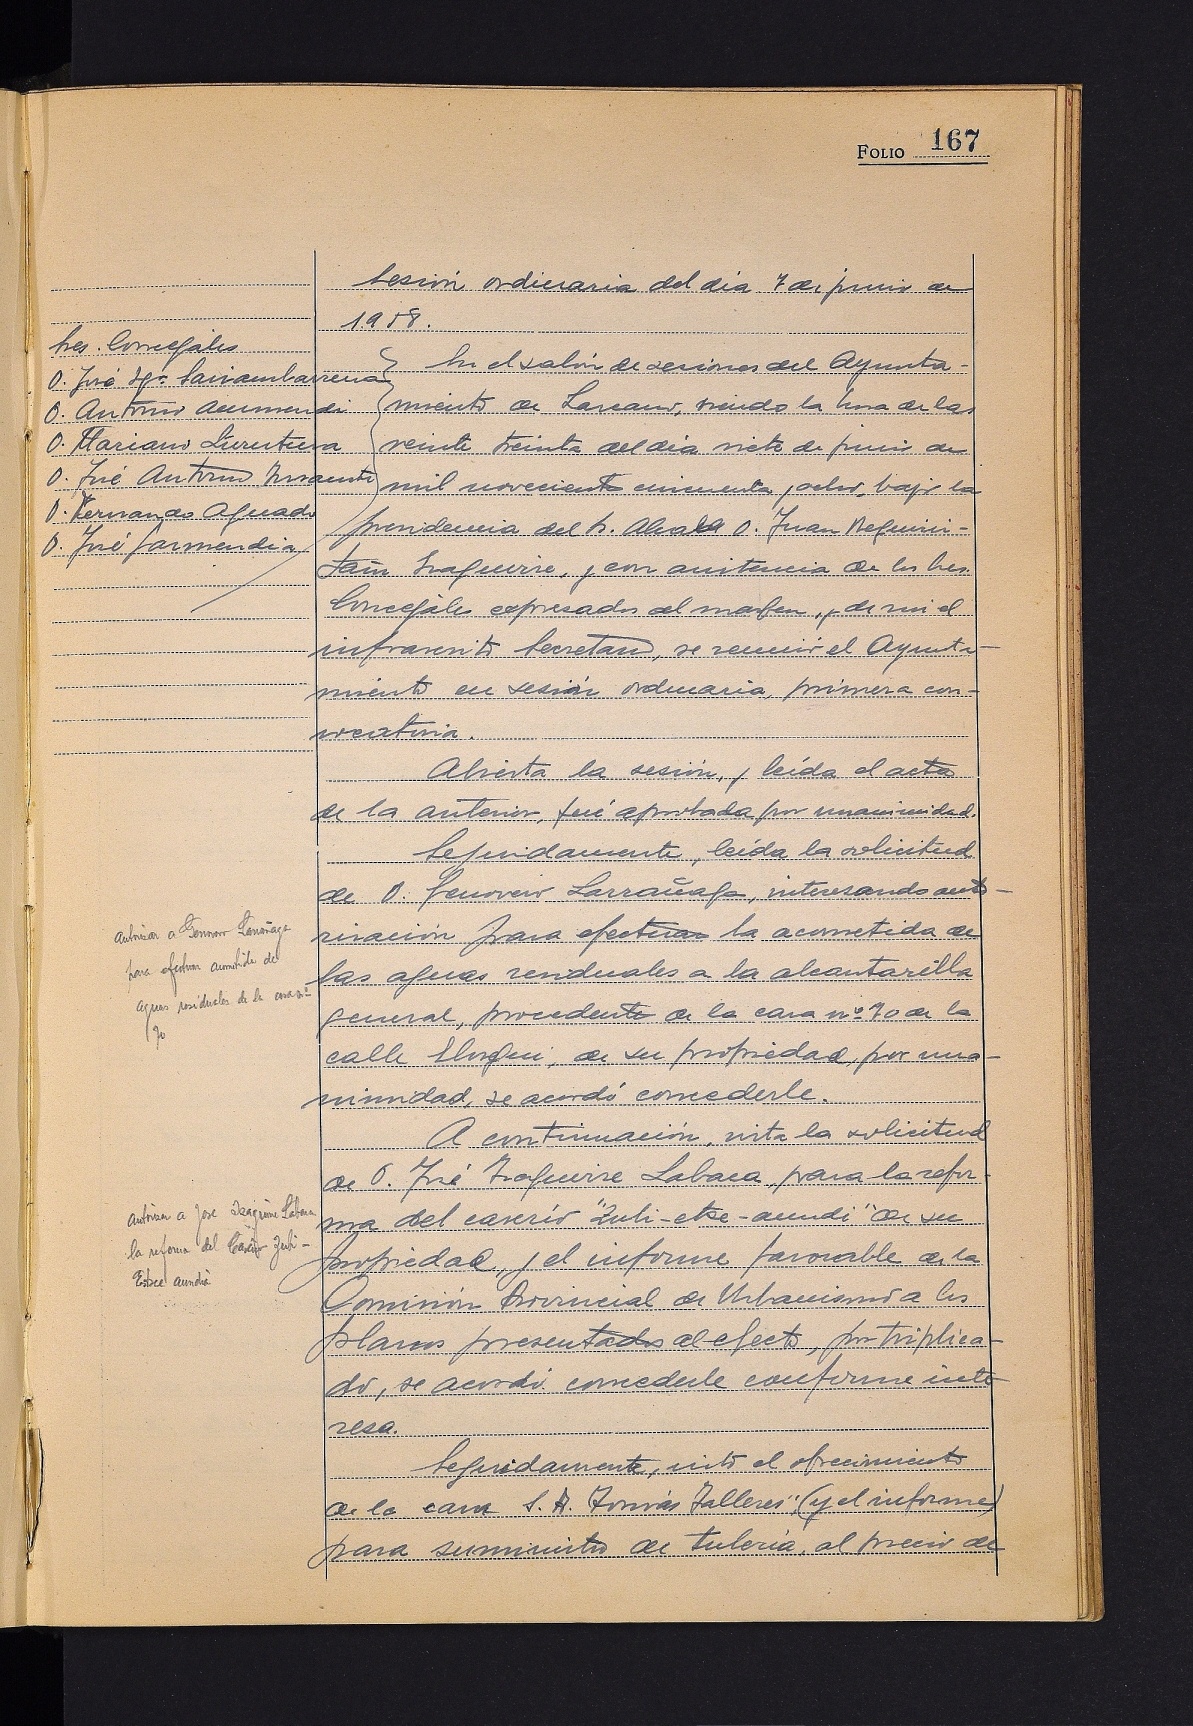 FOLIO 167
Sesión ordinaria del día 7 de junio de
1.958.
Sres. Concejales
D. José Igº. Sarriambarrena
D. Antonio Aramendi
D. Mariano
D. José Antonio
D. Fernando Aguado
D. José Garmendia
En el salón de sesiones del Ayunta-
miento de Lazcano, siendo la hora de las
veinte treinta del día siete de junio de
mil novecientos cincuenta y ocho, bajo la
presidencia del Sr. Alcalde D. Juan Beguiris-
tain Izaguirre, y con asistencia de los Sres.
Concejales expresados al margen, y de mi el
infrascrito Secretario, se reunió el Ayunta-
miento en sesión ordinaria, primera con-
vocatoria.
Abierta la sesión, y leída el acta
de la anterior, fué aprobada por unanimidad.
Seguidamente, leída la solicitud
de D. Genoveio Larrañaga, interesando auto-
rización para efectuar la acometida de
las aguas residuales a la alcantarilla
general, procedente de la casa nº 70 de la
calle Elosegui, de su propiedad, por una-
nimidad, se acordó concederle.
Autorizar a Larrañaga
para efectuar acometida de
aguas residuales de la casa nº
70
A continuación, vista la solicitud
de D. José Izaguirre Labaca, para la refor-
ma del caserío "Zubi-etxe-aundi" de su
propiedad, y el informe favorable de la
Comisión Provincial de Urbanismo a los
planos presentados al efecto, por triplica-
do, se acordó concederle conforme inte-
resa.
Autorizar a Jose Izaguirre Labaca
la reforma del Caserío Zubi-
Etxe aundia
Seguidamente, visto el ofrecimiento
de la casa S. A. Tomás Talleres", (y el informe)
para suministro de tubería, al precio de